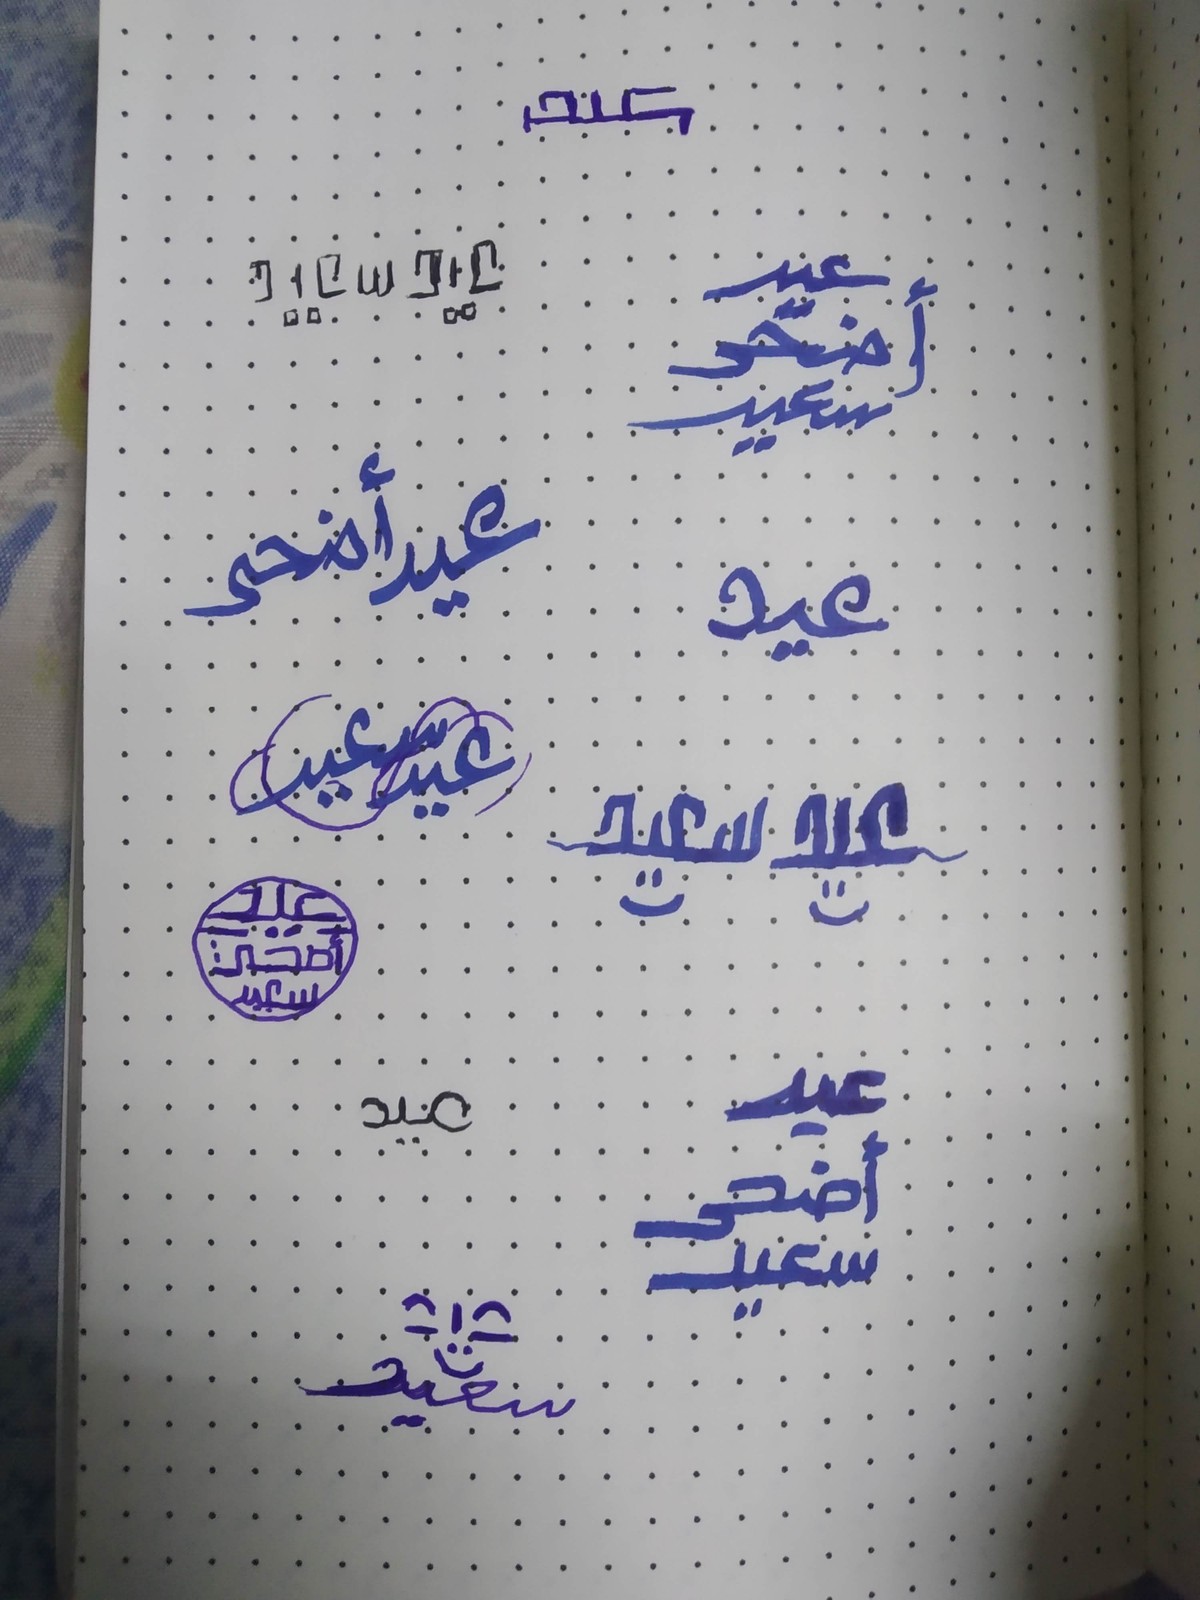 عيد
عيد سعيد
عيد
أضحى
سعيد
عيد أضحى
عيد
عيد سعيد
عيد سعيد
عيد
أضحى
سعيد
عيد
عيد
أضحى
سعيد
عيد
سعيد